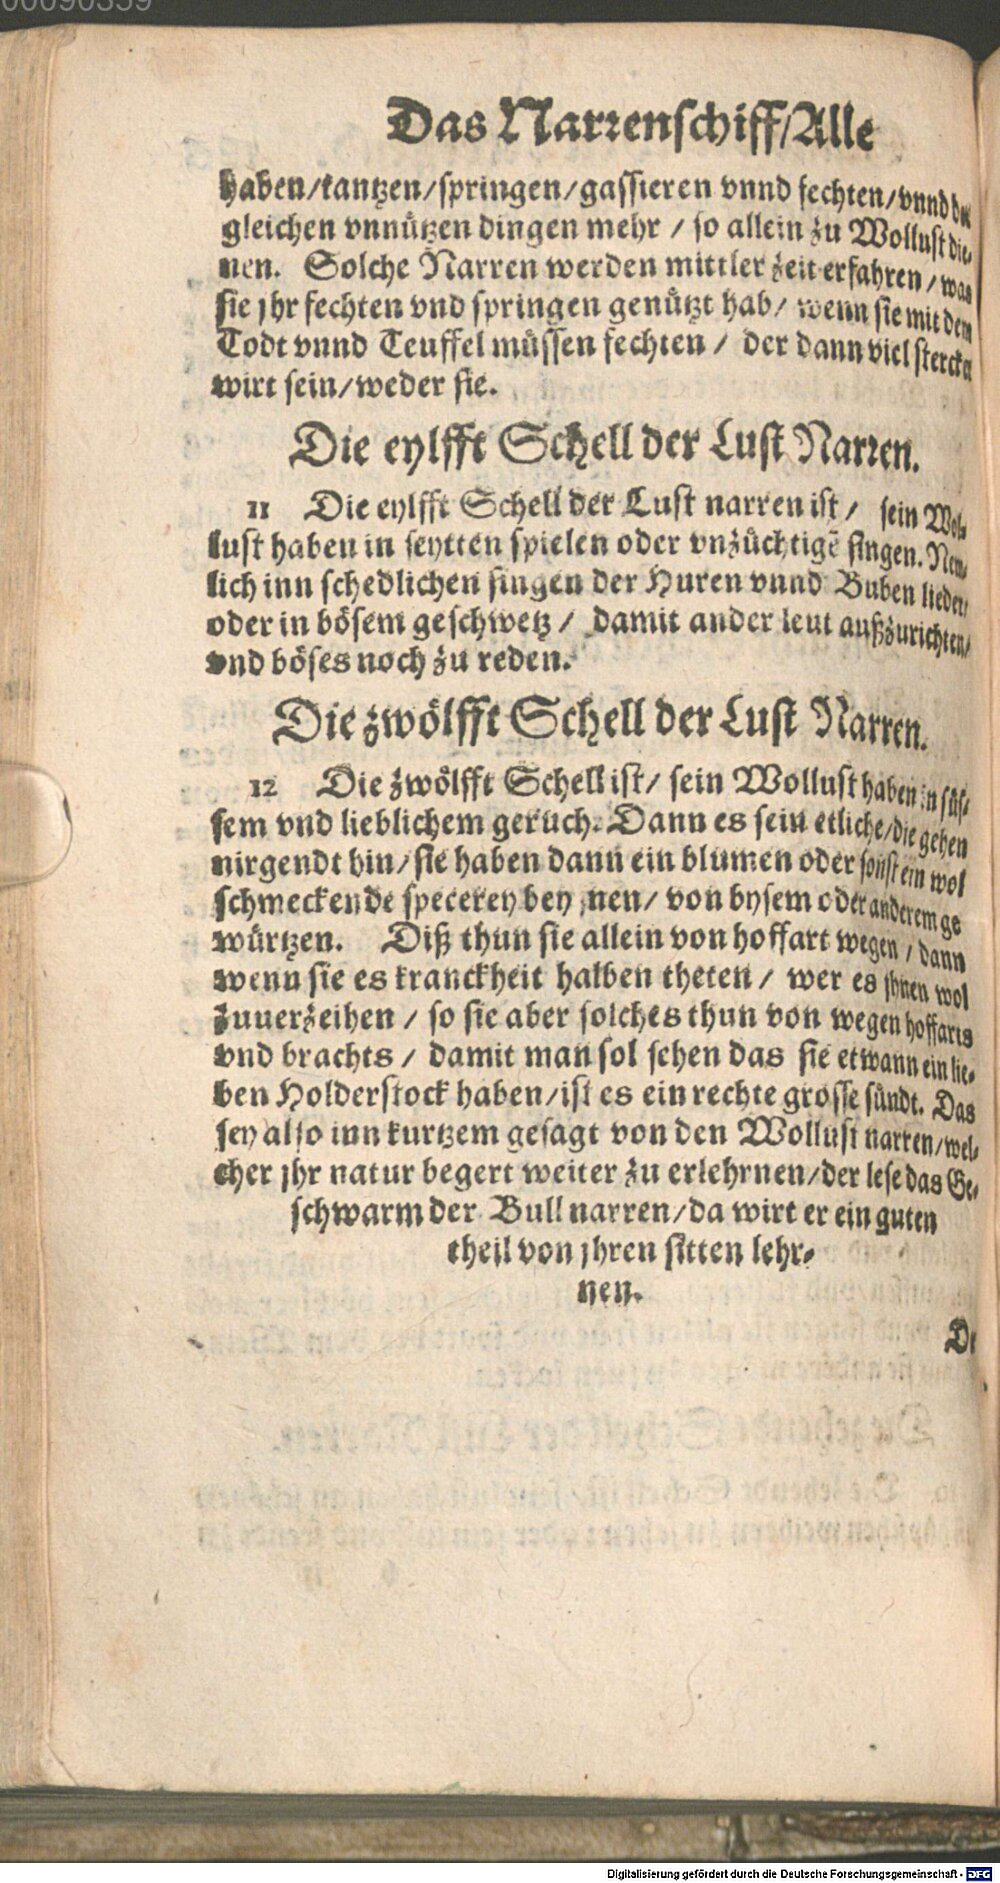 00090359
Das Narrenschiff/Alle
haben/tantzen/springen/gassieren vnnd fechten/vnnd
gleichen vnnützen dingen mehr / so allein zu Wollust die-
nen. Solche Narren werden mittler zeit erfahren / was
sie jhr fechten vnd springen genützt hab/ wenn sie mit dem
Todt vnnd Teuffel müssen fechten / der dann viel stercker
wirt sein/weder sie.
Die eylfft Schell der Lust Narren.
11 Die eylfft Schell der Lust narren ist / sein Wol-
lust haben in seytten spielen oder vnzüchtigē singen. Nem-
lich inn schedlichen singen der Huren vnnd Buben lieder/
oder in bösem geschwetz / damit ander leut außzurichten/
vnd böses noch zu reden.
Die zwölfft Schell der Lust Narren.
12 Die zwölfft Schell ist/ sein Wollust haben in süs-
sem vnd lieblichem geruch. Dann es sein etliche/die gehen
nirgendt hin/sie haben dann ein blumen oder sonst ein wol
schmeckende specerey bey jnen/ von bysem oder anderem ge
würtzen. Diß thun sie allein von hoffart wegen / dann
wenn sie es kranckheit halben theten / wer es jhnen wol
zuuerzeihen / so sie aber solches thun von wegen hoffarts
vnd brachts / damit man sol sehen das sie etwann ein lie-
ben Holderstock haben/ist es ein rechte grosse sündt. Das
sey also inn kurtzem gesagt von den Wollust narren/wel-
cher jhr natur begert weiter zu erlehrnen/der lese das Ge-
schwarm der Bull narren/da wirt er ein guten
theil von jhren sitten lehr-
nen.
De
Digitalisierung gefördert durch die Deutsche Forschungsgemeinschaft - DFG